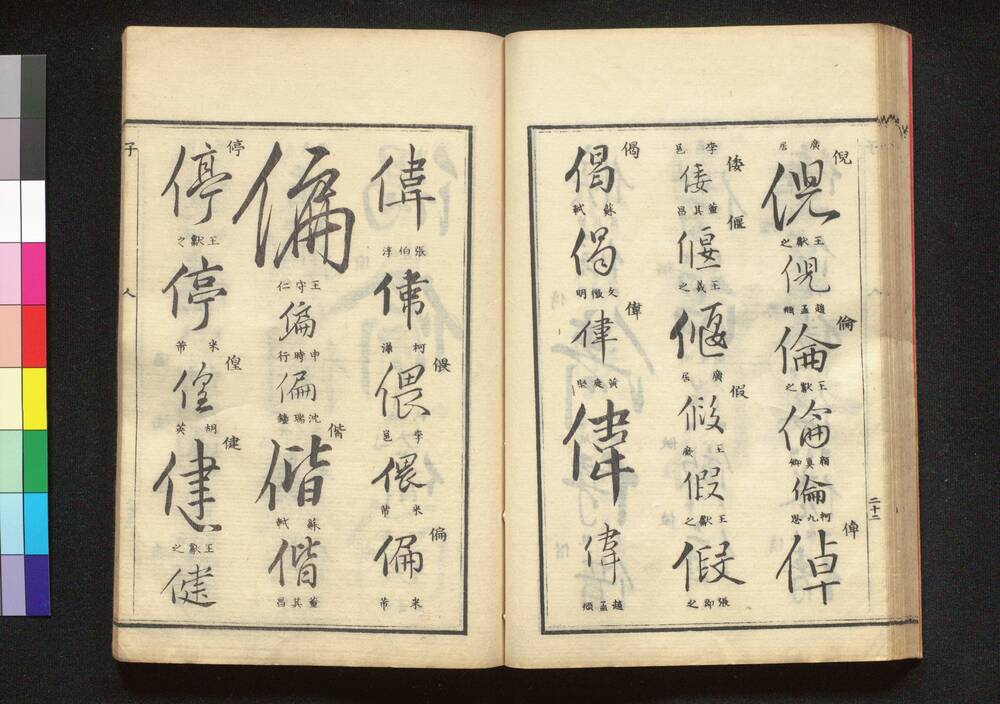 二十二
倪
廣居
倪
王獻之
倪
趙孟頫
倫
倫
王獻之
倫
顏真卿
倫
柯九思
倬
倬
李邕
倭
倭
董其昌
偃
偃
王羲之
偃
廣居
假
假
王廙
假
王獻之
假
張即之
偈
偈
蘇軾
偈
文徵明
偉
偉
黃庭堅
偉
偉
趙孟頫
偉
張伯淳
偉
柯
偎
偎
李邕
偎
米芾
偏
偏
米芾
偏
王守仁
偏
申時行
偏
沈瑞鐘
偕
偕
蘇軾
偕
董其昌
停
停
王獻之
停
米芾
偟
偟
胡英
健
健
王獻之
健
子
人